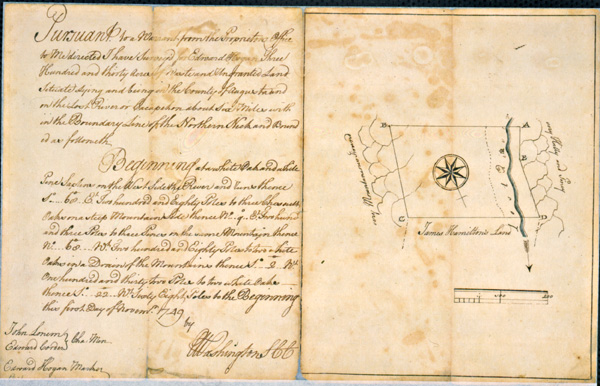 Pursuant to a Warrant from the Proprietors Office
to Me directed I have Surveyed for Edward Hogan Three
Hundred and thirty Acres of waste and Ungranted Land
Situate lying and being in the County of Augusta and
on the Lost River or Cacapehon about Six Miles with
in the Boundary Line of the Northern Neck and Bound
ed as followeth
Beginning at a white Oak and white
Pine Saplin on the West Side the River and runs thence
So. 60 Et. Two hundred and Eighty Poles to three Chesnut
Oaks on a steep Mountain Side thence No. 9 Et. Two hund
and three Poles to three Pines on the same Mountain thence
No. 68 Wt. Two hundred and Eighty Poles to two white
Oaks in a Drain of the Mountains thence So. 2 Wt.
One hundred and thirty two Poles to two white Oaks
thence So. 22 Wt. Sixty Eight Poles to the Beginning
this first Day of Novemr. 1749
by
GWashington S C C
John Lonem
Edward Corder
Cha. Men
Edward Hogan Marker
B
A
C
D
James Hamilton's Land
100
200